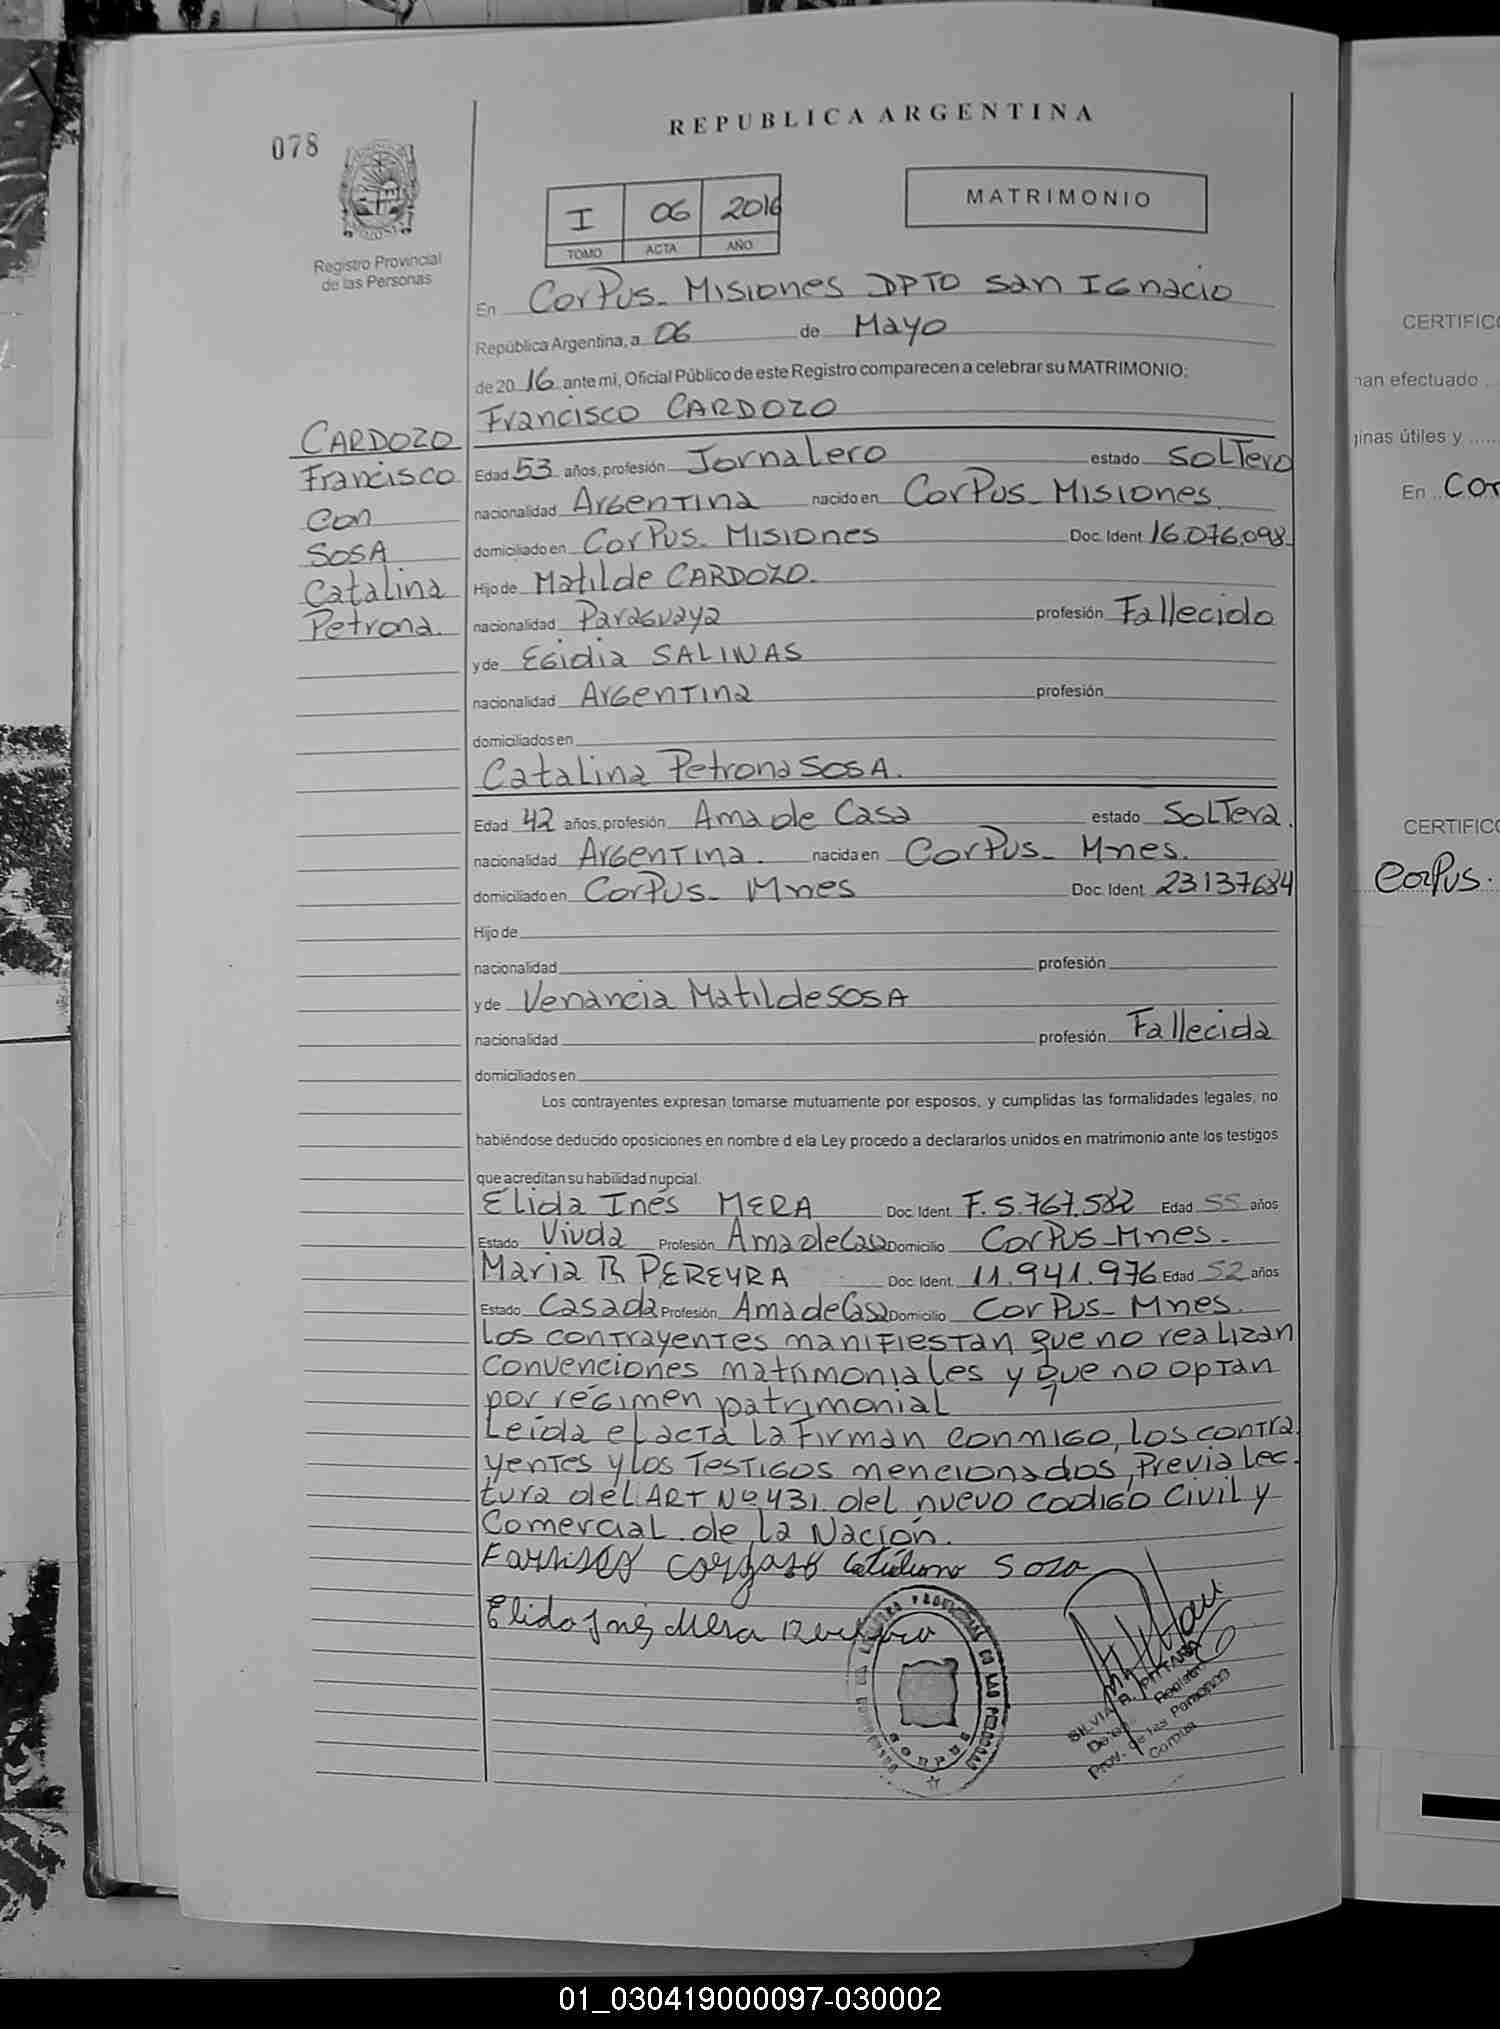 REPUBLICA ARGENTINA
078
MATRIMONIO
I 06 2016
TOMO ACTA AÑO
Registro Provincial
de las Personas
En Corpus - Misiones DPTO San Ignacio
República Argentina, a 06 de Mayo
de 20 16 ante mi, Oficial Público de este Registro comparecen a celebrar su MATRIMONIO:
Francisco CARDOZO
CARDOZO
Francisco
con
SOSA
Catalina
Petrona.
Edad 53 años, profesión Jornalero estado Soltero
nacionalidad Argentina nacido en Corpus - Misiones.
domiciliado en Corpus - Misiones Doc. Ident. 16.076.098
Hijo de Matilde CARDOZO.
nacionalidad Paraguaya profesión Fallecido
y de Egidia SALINAS
nacionalidad Argentina profesión
domiciliados en
Catalina Petrona SOSA.
Edad 42 años, profesión Ama de Casa estado Soltera.
nacionalidad Argentina. nacida en Corpus - Mnes.
domiciliado en Corpus - Mnes Doc. Ident. 23137684
Hijo de
nacionalidad profesión
y de Venancia Matilde SOSA
nacionalidad profesión Fallecida
domiciliados en
Los contrayentes expresan tomarse mutuamente por esposos, y cumplidas las formalidades legales, no
habiéndose deducido oposiciones en nombre d ela Ley procedo a declararlos unidos en matrimonio ante los testigos
que acreditan su habilidad nupcial.
Elida Inés MERA Doc. Ident. F. 5.767.582 Edad 55 años
Estado Viuda Profesión Ama de Casa Domicilio Corpus - Mnes.
Maria R PEREYRA Doc. Ident. 11.941.976 Edad 52 años
Estado Casada Profesión Ama de Casa Domicilio Corpus - Mnes.
Los contrayentes manifiestan que no realizan
convenciones matrimoniales y que no optan
por régimen patrimonial
Leida el acta la firman conmigo, los contra
yentes y los testigos mencionados, Previa lec-
tura del ART Nº 431 del nuevo codigo Civil y
Comercial de la Nación.
Soza
Elida Inés Mera
CORPUS
SILVIA A.
Registro
Prov. de las Personas
Corpus
CERTIFICO
han efectuado
ginas útiles y
En Cor
CERTIFICO
Corpus.
01_030419000097-030002